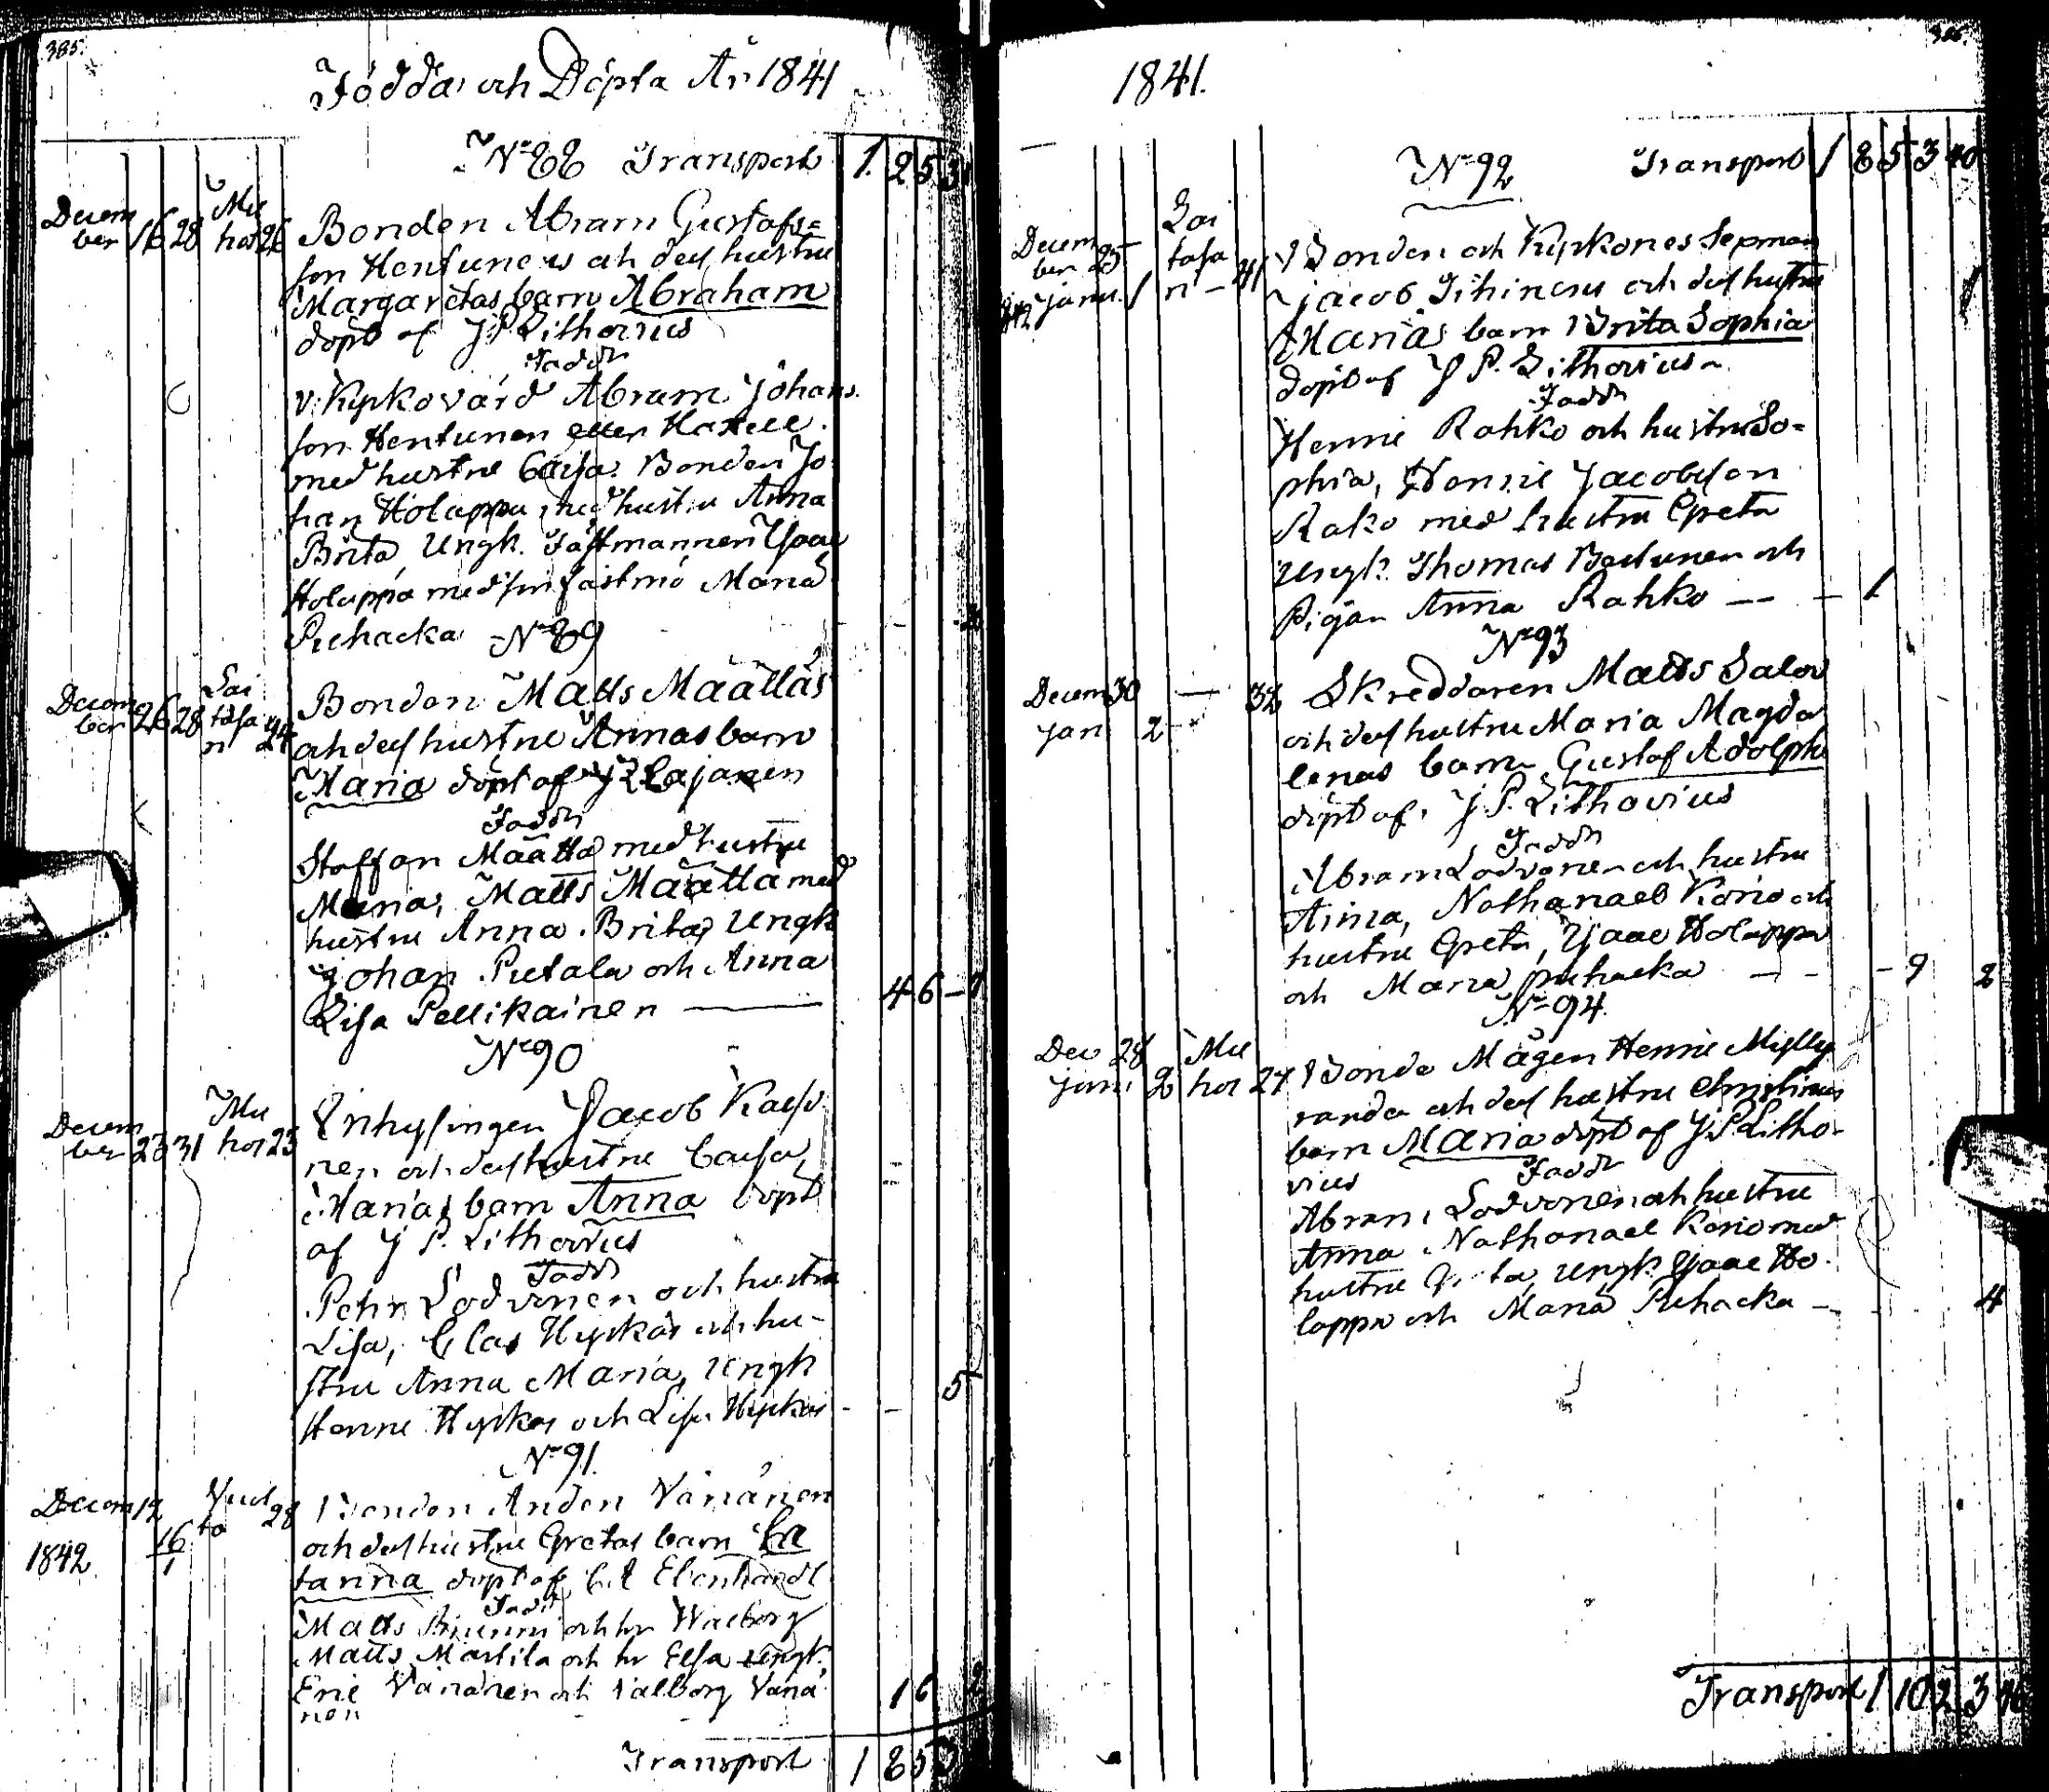 385.
Födda och Döpta År 1841
N=88 Transport 1. 2 5 3
Decem
ber 16 28 Mu
hos 26
Bonden Abram Gustafs=
son Hentunens och dess hustru
Margaretas barn Abraham
döpt af J P Lithovius
Faddr
v: Kyrkovärd Abram Johans
son Hentunen eller Haxell
med hustru Caisa. Bonden Jo
han Holappa med hustru Anna
Brita, Ungk. Fästmannen Isaac
Holappa med sin fästmö Maria
Puhacka N=89
Decem
ber 26 28 Lai
tasa
n 24
Bonden Matts Määttäs
och dess hustru Annas barn
Maria döpt af Cajanen
Faddr
Staffan Määttä med hustru
Maria, Matts Määttä med
hustru Anna Brita, Ungk
Johan Pietala och Anna
Lisa Pellikainen — 4 6 - 1
N=90
Decem
ber 23 31 Mu
hos 25
Inhysingen Jacob
nen och dess hustru Caisa
Marias barn Anna döpt
af J P. Lithovius
Faddr
Petr Lodvonen och hustru
Lisa, Clas Hyrkäs och hu-
stru Anna Maria, Ungk 5
Henne Hyrkäs och Lisa Hyrkäs - -
N=91.
Decem 12
1842 16
1
to 28
Bonden Anden Vänänen
och dess hustru Gretas barn Ca
tanna döpt af
Faddr
Matts och hr Walborg
Matts Martila och hr Elsa Ungk.
Eric Vänänen och Valborg Vänä
nen 1 6 2
Transport 1 8 5 3
1841.
N=92 Transport 1 8 5 3 40
Decem
ber 25
Janu. 1
Lai
tasa
n - 41
Bonden och Kyrkones Sepman
Jacob Tihinens och dess hustru
Marias barn Brita Sophia
döpt af J P. Lithovius
Faddr
Henric Rahko och hustru So=
phia, Henric Jacobsson
Rako med hustru Greta
Ungk. Thomas och
Pigan Anna Rahko — - 1
N=93
Decem 30 — 32
Jan 2
Skreddaren Matts Salov
och dess hustru Maria Magda
lenas barn Gustaf Adolph
döpt af J P. Lithovius
Faddr
Abram Lodvonen och hustru
Anna, Nathanael Korio och
hustru Greta, Isaac Holappa
och Maria Puhacka — - - 9 2
N=94.
Dec 28 Mu
Janu 2 hos 27
Bonde Mågen Henric Mylly
randa och dess hustru Christinas
barn Maria döpt af J P. Litho-
vius Faddr
Abram Lodvonen och hustru
Anna, Nathanael Korio med
hustru Greta, Ungk Isaac Ho-
lappa och Maria Puhacka — 4
Transport 1 10 2 3 46